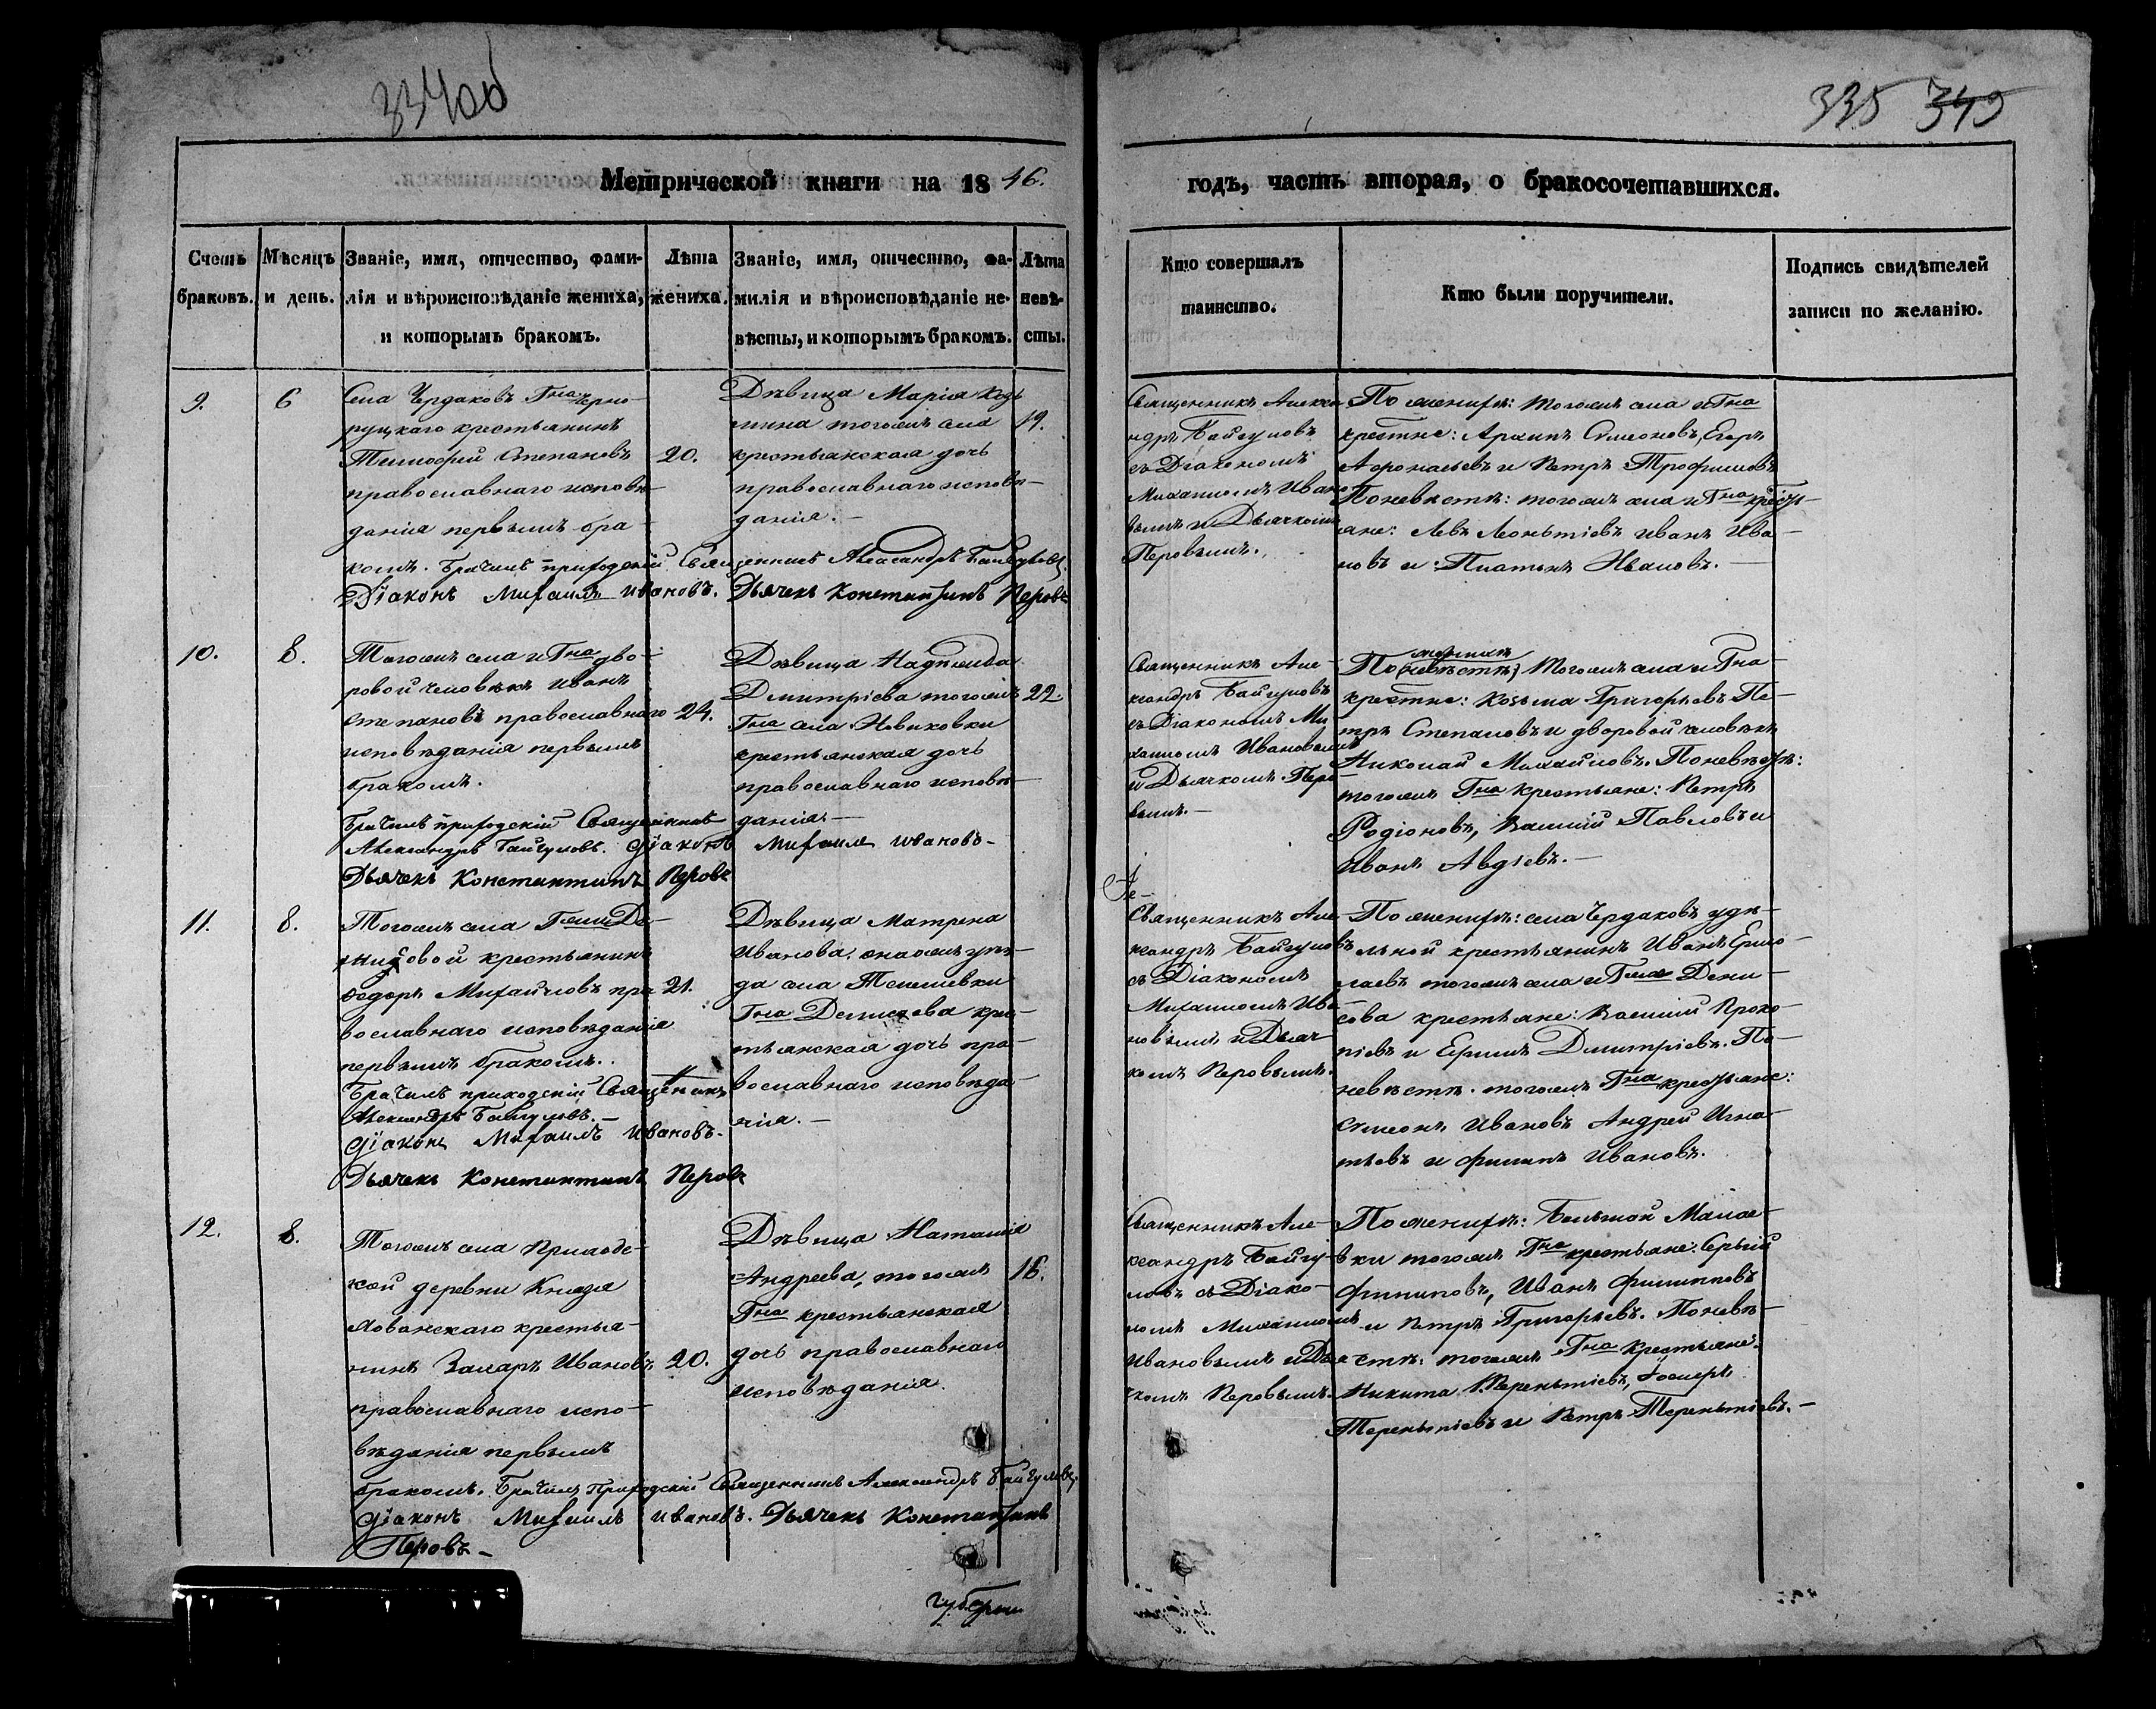 334об
335 349
Метрической книги на 1846.
годъ, часть вторая, о бракосочетавшихся.
Счетъ браковъ.
Мѣсяцъ и день.
Званіе, имя, отчество, фами-
лія и вѣроисповѣданіе жениха,
и которымъ бракомъ.
Лѣта
жениха.
Званіе, имя, отчество, фа-
милія и вѣроисповѣданіе не-
вѣсты, и которымъ бракомъ.
Лѣта
невѣ-
сты.
Кто совершалъ
таинство.
Кто были поручители.
Подпись свидѣтелей
записи по желанію.
9.
6
Села Чердаковъ Гна Черно-
руцкаго крестьянинъ
Тимофей Степановъ
православнаго исповѣ-
данія первымъ бра-
комъ. Бračилъ приходскій Священникъ Александръ Байгуловъ.
Діаконъ Михаилъ Ивановъ. Дьячекъ Константинъ Перовъ
20.
Дѣвица Марія Козь
мина тогожъ села
крестьянская дочь
православнаго исповѣ-
данія.-
19.
Священникъ Алекса
ндръ Байгуловъ
съ Діакономъ
Михаиломъ Ивано
вымъ и Дьячкомъ
Перовымъ.
По женихѣ: тогожъ села и Гна
крестне: Архипъ Симеоновъ, Егоръ
Афонасьевъ и Петръ Трофимовъ
По невѣстѣ: тогожъ села и Гна крестья-
ане: Левъ Леонтіевъ Иванъ Ива-
новъ и Платонъ Ивановъ.-
10.
8.
Тогожъ села и Гна дво-
ровой человѣкъ Иванъ
Степановъ православнаго
исповѣданія первымъ
бракомъ.
Бračилъ приходскій Священникъ
Александръ Байгуловъ. Діаконъ Михаилъ Ивановъ-
Дьячекъ Константинъ Перовъ
24.
Дѣвица Надѣжда
Дмитріева тогожъ
Гна села Новиковки
крестьянская дочь
православнаго исповѣ-
данія.-
22.
Священникъ Але-
ксандръ Байгуловъ
съ Діакономъ Ми-
хаиломъ Ивановымъ
и Дьячкомъ Перо-
вымъ.-
женихѣ
По (невѣстѣ) тогожъ села и Гна-
крестне: Козьма Григорьевъ Пе-
тръ Степановъ и дворовой человѣкъ
Николай Михайловъ. По невѣстѣ:
тогожъ Гна крестьяне: Петръ
Родіоновъ, Василій Павловъ и
Иванъ Авдіевъ.-
11.
8.
Тогожъ села Гжи Де-
нисовой крестьянинъ
Федоръ Михайловъ пра
вославнаго исповѣданія
первымъ бракомъ.
Бračилъ приходскій Священникъ
Александръ Байгуловъ.-
Діаконъ Михаилъ Ивановъ-
Дьячекъ Константинъ Перовъ
21.
Дѣвица Матрена
Иванова, онагожъ уѣз-
да села Тенеевки
Гна Денисова крес-
тьянская дочь пра-
вославнаго исповѣда-
нія.-
Священникъ Але-
ксандръ Байгуловъ
съ Діакономъ
Михаиломъ Ива
новымъ и Дьяч
комъ Перовымъ.
По женихѣ: села Чердаковъ удѣ-
льной крестьянинъ Иванъ Ермо-
лаевъ тогожъ села и Гжи Дени-
сова крестьяне: Василій Проко-
піевъ и Ефимъ Дмитріевъ. По-
невѣстѣ. тогожъ Гна крестьяне:
Симеонъ Ивановъ Андрей Игна-
тьевъ и Филипъ Ивановъ.
12.
8.
Тогожъ села Приходс-
кой деревни Князя
Хованскаго крестья-
нинъ Захаръ Ивановъ
православнаго испо-
вѣданія первымъ
бракомъ. Бračилъ Приходскій Священникъ Александръ Байгуловъ,
Діаконъ Михаилъ Ивановъ. Дьячекъ Константинъ
Перовъ.-
20.
Дѣвица Наталія
Андреева, тогожъ
Гна крестьянская
дочь православнаго
исповѣданія.
18.
Священникъ Але-
ксандръ Байгу-
ловъ съ Діако-
номъ Михаиломъ
Ивановымъ и Дья
чкомъ Перовымъ.
По женихѣ: Большой
ки тогожъ Гна крестьяне: Сергѣй
Филиповъ, Иванъ Филипповъ
и Петръ Григорьевъ. По невѣ-
стѣ: тогожъ Гна крестьяне:
Никита Терентіевъ,
Терентіевъ и Петръ Терентіевъ.-
губерни